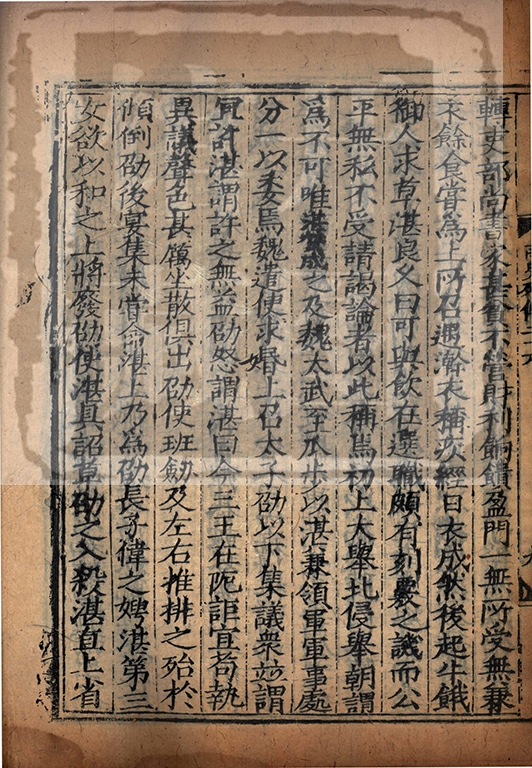 轉吏部尚書家甚貧不營財利餉饋盈門一無所受無兼
衣餘食嘗爲上所召遇澣衣稱疾經日衣成然後起牛餓
御人求草湛良久曰可與飲在選職頗有刻覈之譏而公
平無私不受請謁論者以此稱焉初上大舉北侵舉朝謂
爲不可唯湛贊成之及魏太武至瓜步以湛兼領軍軍事處
分一以委焉魏遣使求婚上召太子劭以下集議衆並謂
宜許湛謂許之無益劭怒謂湛曰今三王在阨詎宜苟執
異議聲色甚厲坐散俱出劭使班劒及左右推排之殆於
傾倒劭後宴集未嘗命湛上乃爲劭長子偉之娉湛第三
女欲以和之上將廢劭使湛具詔草劭之入弒湛直上省